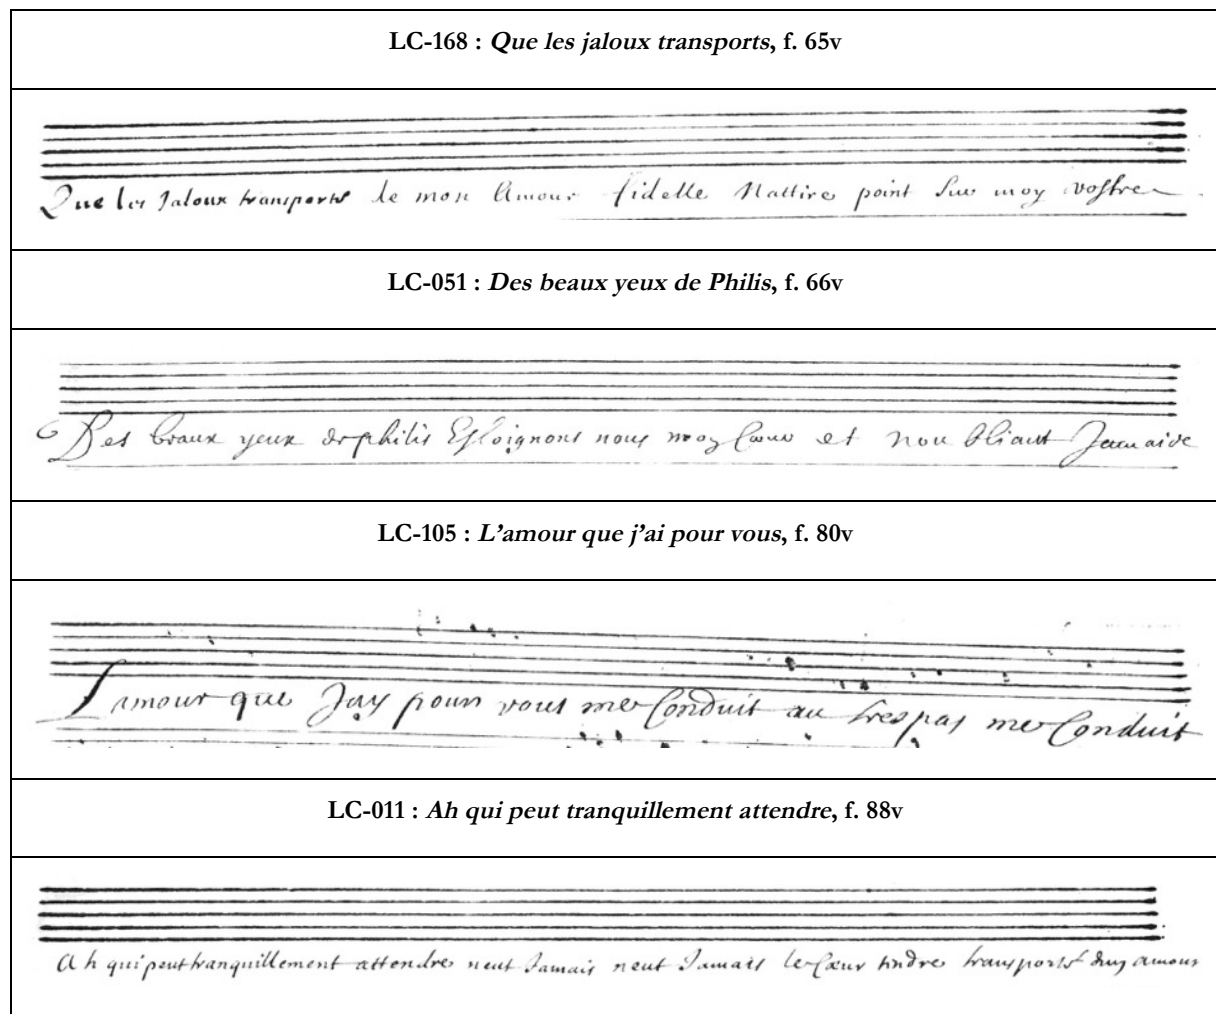 LC-168 : Que les jaloux transports, f. 65v
Que les Jaloux transports de mon Amour fidelle Nattire point Sur moy vostre
LC-051 : Des beaux yeux de Philis, f. 66v
Des beaux yeux de philis Esloignons nous moy Cœur et nou bliant Jamais de
LC-105 : L’amour que j’ai pour vous, f. 80v
Lamour que Jay pour vous me Conduit au trespas me Conduit
LC-011 : Ah qui peut tranquillement attendre, f. 88v
Ah qui peut tranquillement attendre neut Jamais neut Jamais le Cœur tendre transports dun amour